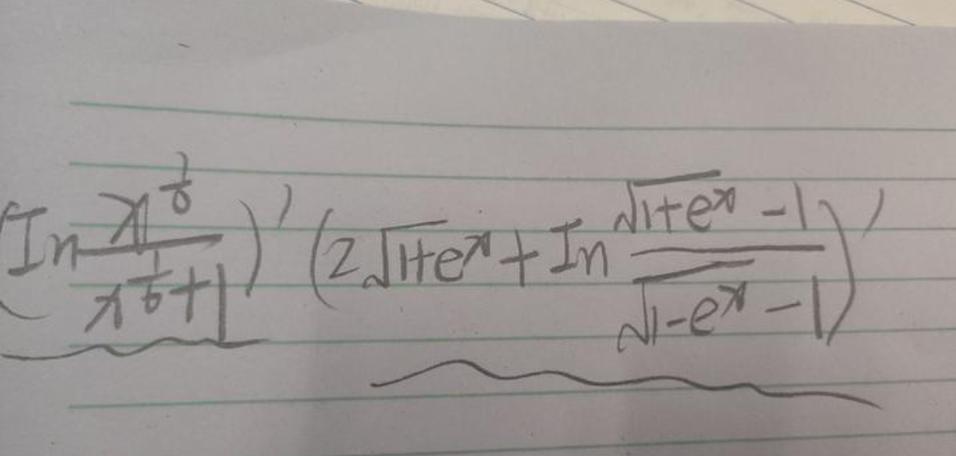 (In x^(1/6) / (x^(1/6)+1))' (2√(1+e^x) + In (√(1+e^x) -1) / (√(1-e^x) -1))'